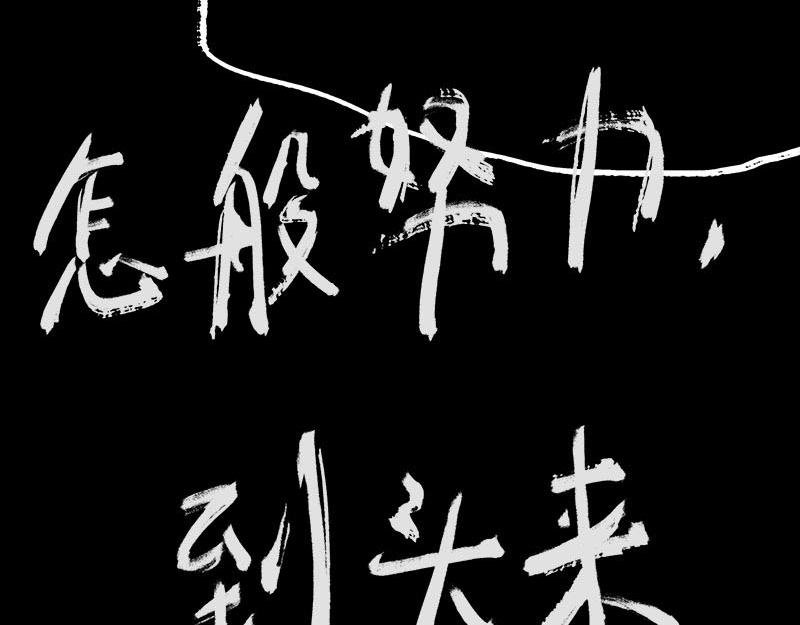 怎般努力，
到头来